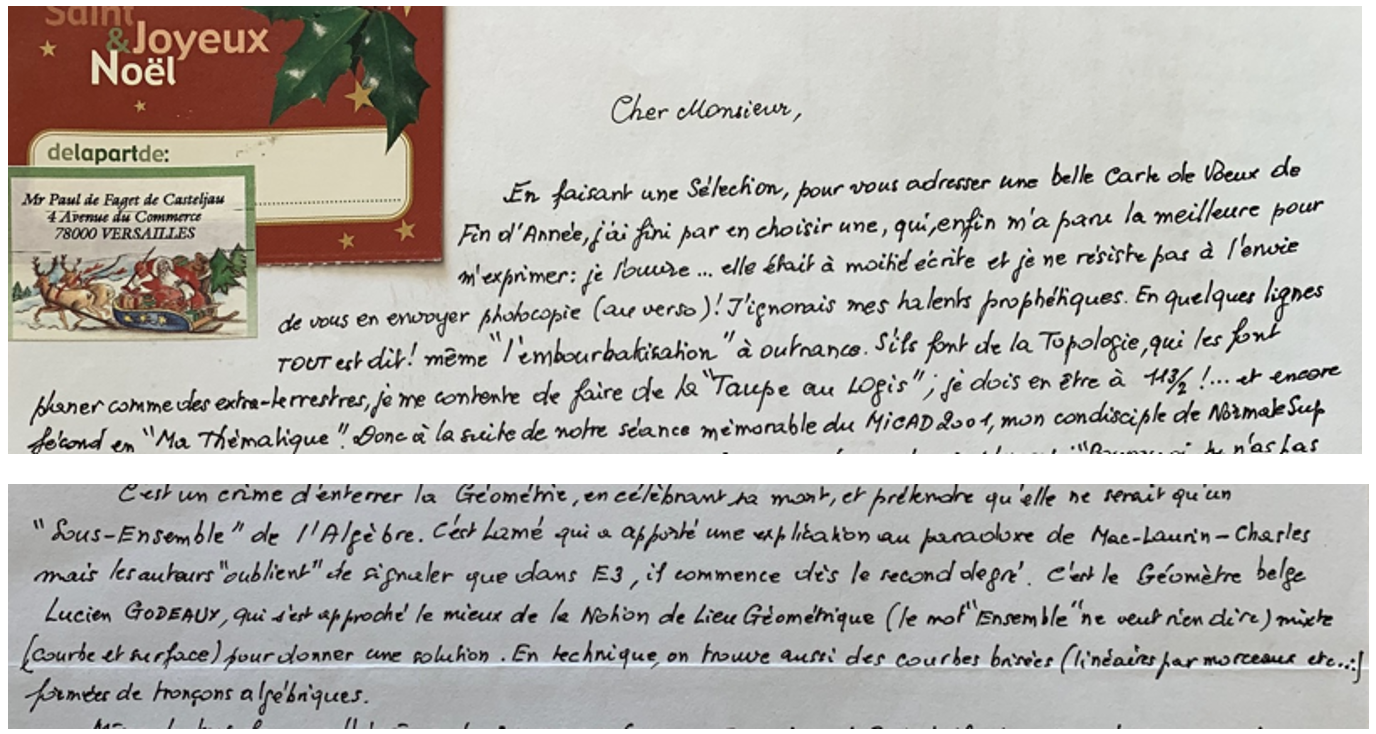 Saint
& Joyeux
Noël
delapartde:
Mr Paul de Faget de Casteljau
4 Avenue du Commerce
78000 VERSAILLES
Cher Monsieur,
En faisant une Sélection, pour vous adresser une belle Carte de Voeux de
Fin d'Année, j'ai fini par en choisir une, qui, enfin m'a paru la meilleure pour
m'exprimer: je l'ouvre ... elle était à moitié écrite et je ne résiste pas à l'envie
de vous en envoyer photocopie (au verso)! J'ignorais mes talents prophétiques. En quelques lignes
TOUT est dit! même "l'embourbakisation" à outrance. S'ils font de la Topologie, qui les font
planer comme des extra-terrestres, je me contente de faire de la "Taupe au Logis"; je dois en être à 113/2 !... et encore
fécond en "Ma Thématique". Donc à la suite de notre séance mémorable du MICAD 2001, mon condisciple de Normale Sup
tu n'as pas
C'est un crime d'enterrer la Géométrie, en célébrant sa mort, et prétendre qu'elle ne serait qu'un
"Sous-Ensemble" de l'Algèbre. C'est Lamé qui a apporté une explication au paradoxe de Mac-Laurin-Charles
mais les auteurs "oublient" de signaler que dans E3, il commence dès le second degré. C'est le Géomètre belge
Lucien GODEAUX, qui s'est approché le mieux de la Notion de Lieu Géométrique (le mot "Ensemble" ne veut rien dire) mixte
(courbe et surface) pour donner une solution. En technique, on trouve aussi des courbes brisées (linéaires par morceaux etc...)
formées de tronçons algébriques.